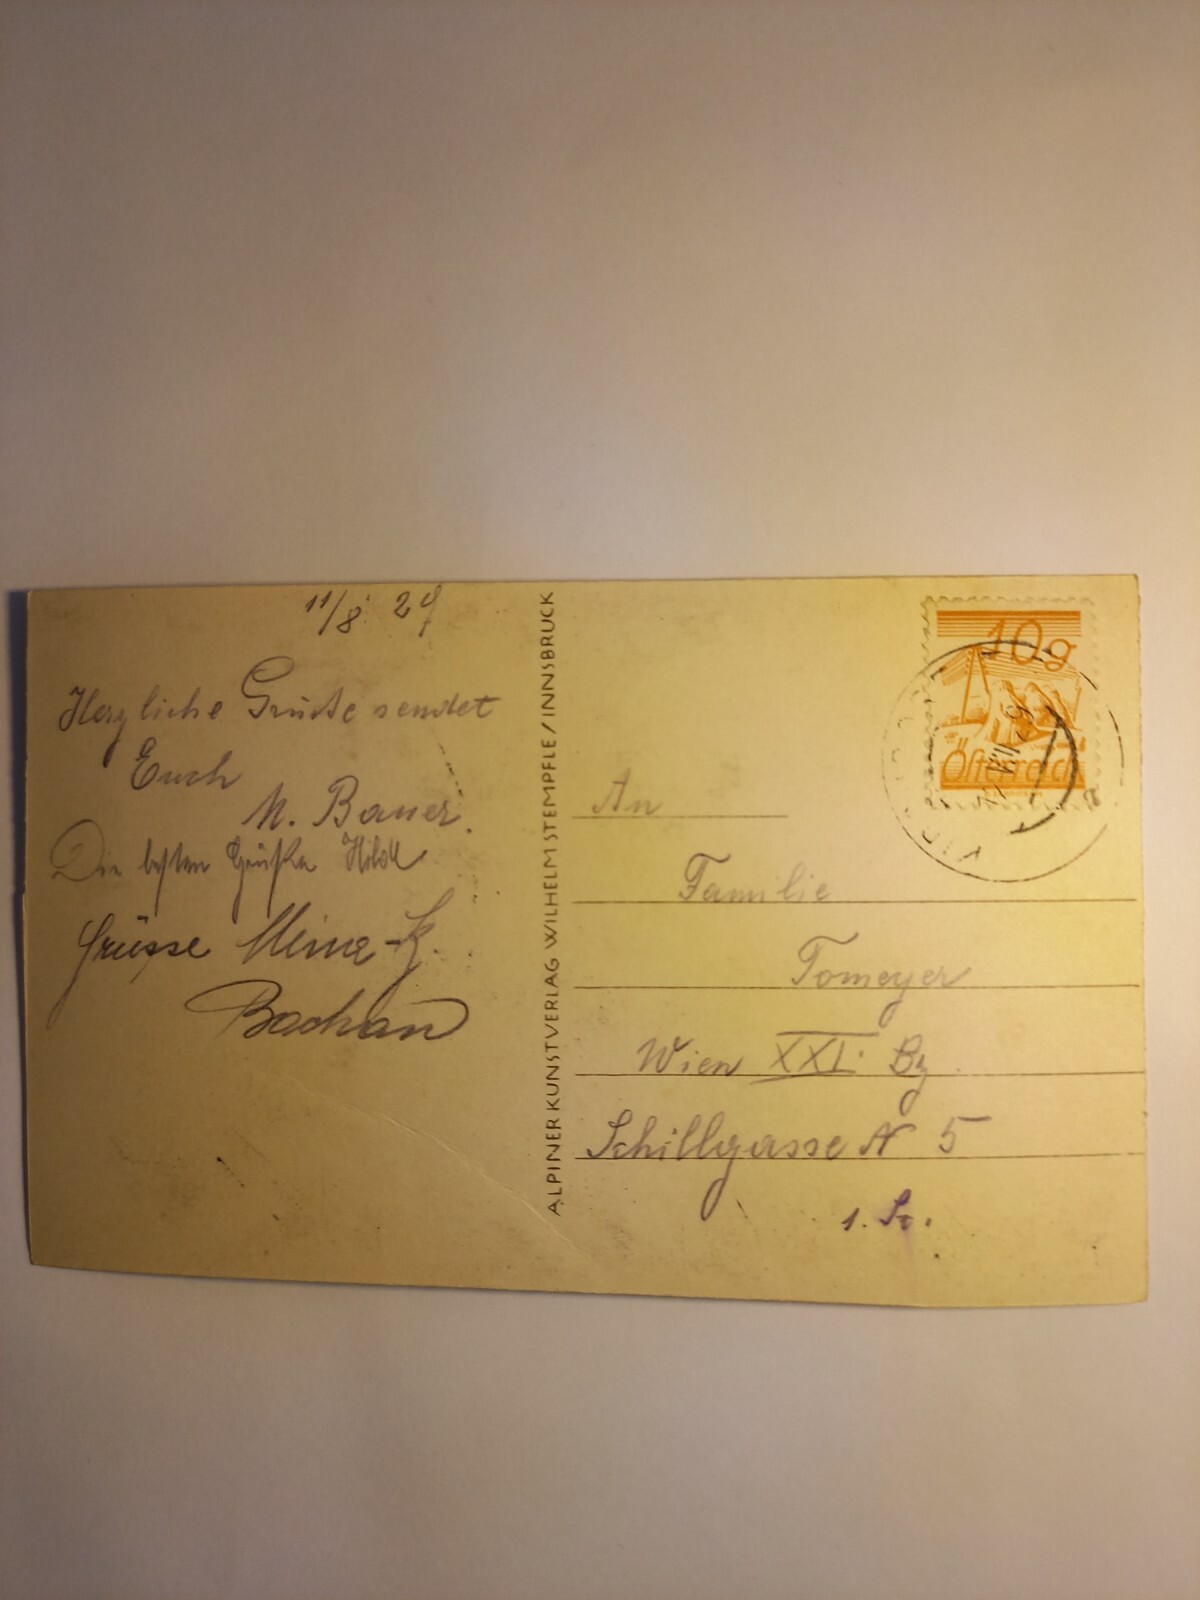 11/8. 29
Herzliche Grüße sendet
Euch
M. Bauer.
Die besten Grüße Hilde
Grüsse
ALPINER KUNSTVERLAG WILHELM STEMPFLE/INNSBRUCK
10g
Österreich
An
Familie
Tomeyer
Wien XXI. Bz
Schillgasse N 5
1. St.